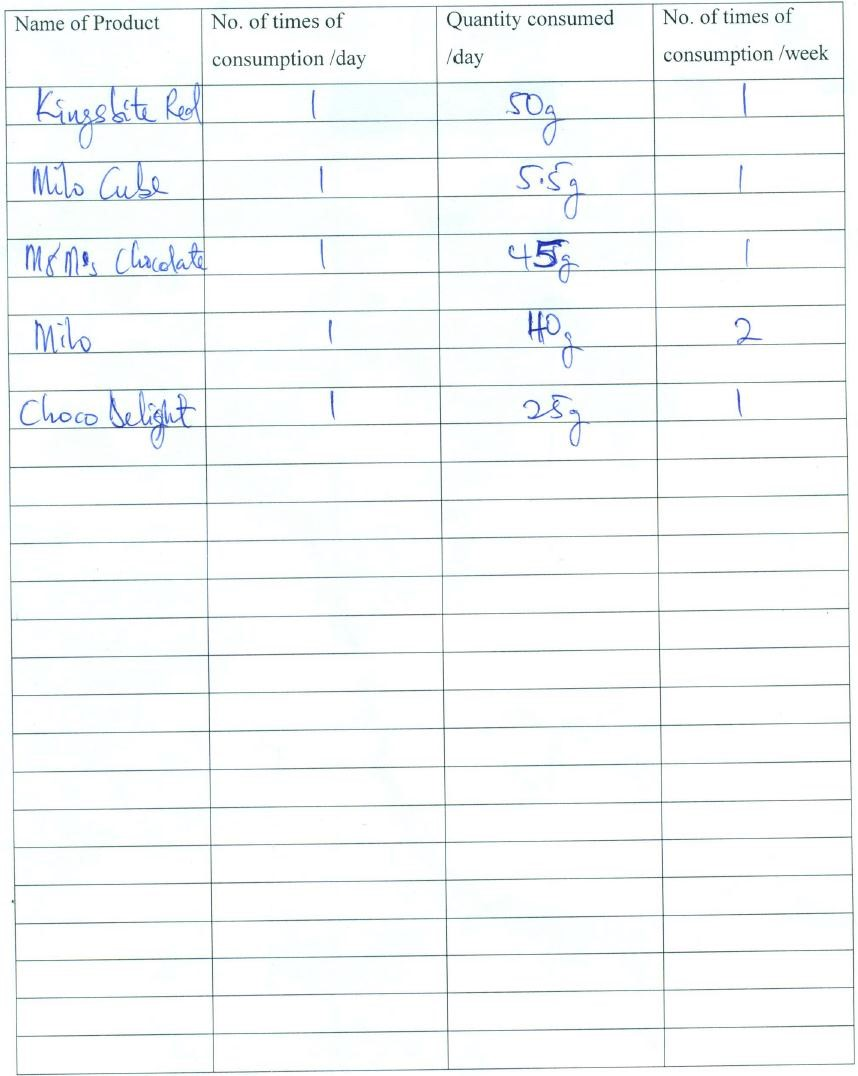 Name of Product No. of times of consumption /day Quantity consumed /day No. of times of consumption /week
Kingsbite Red 1 50g 1
Milo Cube 1 5.5g 1
M&M's Chocolate 1 45g 1
Milo 1 2
Choco Delight 1 25g 1